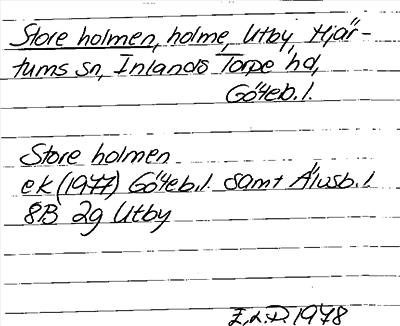 Store holmen, holme, Utby, Hjär-
tums sn, Inlands Torpe hd,
Göteb. l.
Store holmen
ek (1977) Göteb. l. samt Älvsb. l
8B 2g Utby
E.L.D. 1978